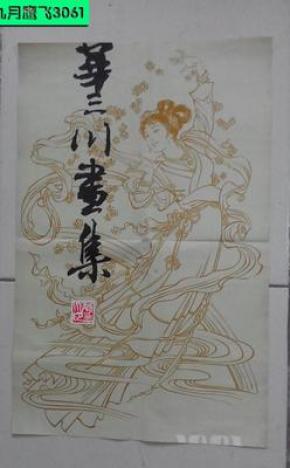 九月鹰飞3061
華三川畫集
1981